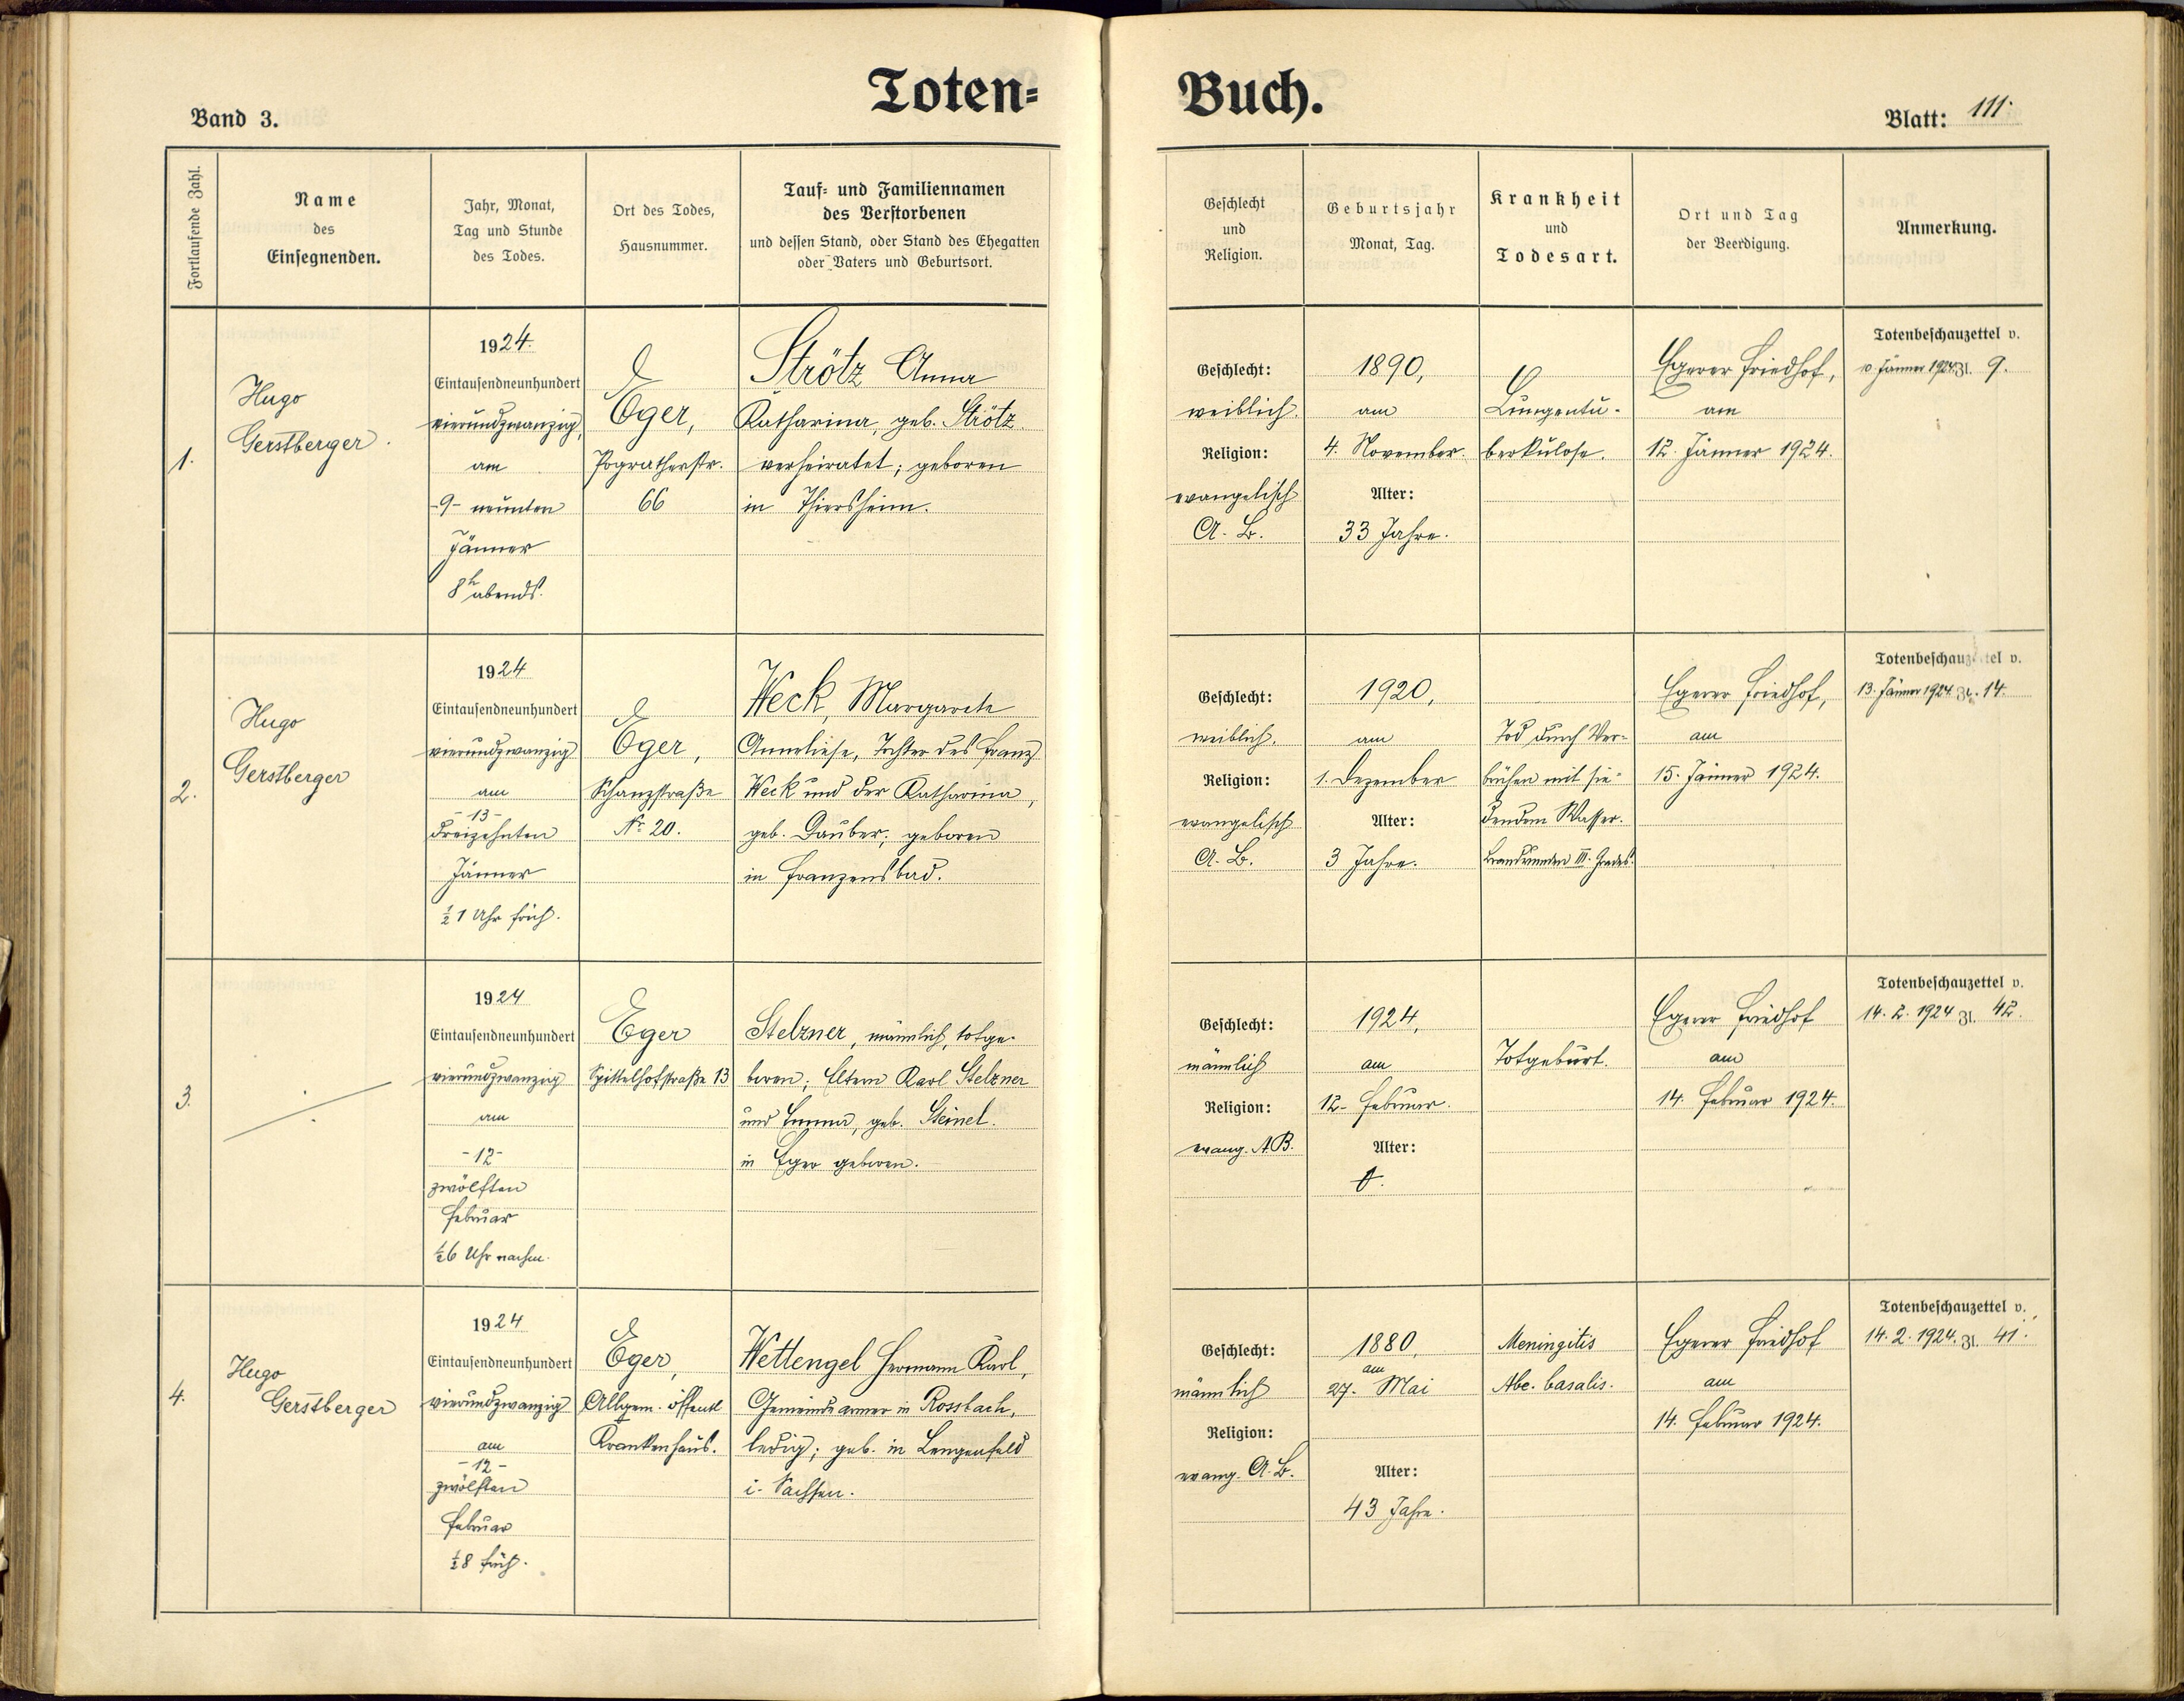 Toten=
Buch.
Band 3.
Blatt: 111.
Fortlaufende Zahl.
Name
des
Einsegnenden.
Jahr, Monat,
Tag und Stunde
des Todes.
Ort des Todes,
Hausnummer.
Tauf- und Familiennamen
des Verstorbenen
und dessen Stand, oder Stand des Ehegatten
oder Vaters und Geburtsort.
Geschlecht
und
Religion.
Geburtsjahr
Monat, Tag.
Krankheit
und
Todesart.
Ort und Tag
der Beerdigung.
Anmerkung.
1.
Hugo
Gerstberger.
1924.
Eintausendneunhundert
vierundzwanzig,
am
-9- neunten
Jänner
8h abends.
Eger,
Pogratherstr.
66
Strötz Anna
Katharina, geb. Strötz
verheiratet; geboren
in Thiersheim.
Geschlecht:
weiblich.
Religion:
evangelisch
A. B.
1890,
am
4. November.
Alter:
33 Jahre.
Lungentu-
berkulose.
Egerer Friedhof,
am
12. Jänner 1924.
Totenbeschauzettel v.
Jänner 1924 Zl. 9.
2.
Hugo
Gerstberger
1924
Eintausendneunhundert
vierundzwanzig
am
-13-
dreizehnten
Jänner
½ 1 Uhr früh.
Eger,
Schanzstraße
Nr. 20.
Weck, Margarete
Anneliese, Tochter des Franz
Weck und der Katharina,
geb. Dauber; geboren
in Franzensbad.
Geschlecht:
weiblich.
Religion:
evangelisch
A. B.
1920,
am
1. Dezember
Alter:
3 Jahre.
Tod durch Ver-
brühen mit sie-
dendem Wasser.
Brandwunden III. Grades.
Egerer Friedhof,
am
15. Jänner 1924.
Totenbeschauzettel v.
13. Jänner 1924 Zl. 14.
3.
1924
Eintausendneunhundert
vierundzwanzig
am
-12-
zwölften
Februar
½6 Uhr nachm.
Eger
Spittelhofstraße 13
Stelzner, männlich, totge-
boren; Eltern Karl Stelzner
und Emma, geb. Steinel.
in Eger geboren.
Geschlecht:
männlich
Religion:
evang. A.B.
1924,
am
12. Februar.
Alter:
Totgeburt.
Egerer Friedhof
am
14. Februar 1924.
Totenbeschauzettel v.
14. 2. 1924 Zl. 42.
4.
Hugo
Gerstberger
1924
Eintausendneunhundert
vierundzwanzig
am
-12-
zwölften
Februar
½8 früh.
Eger,
Allgem. öffentl
Krankenhaus.
Wettengel Hermann Karl,
Gemeindearmer in Rossbach,
ledig; geb. in Lengenfeld
i. Sachsen.
Geschlecht:
männlich
Religion:
evang. A. B.
1880,
am
27. Mai
Alter:
43 Jahre.
Meningitis
Abc. basalis.
Egerer Friedhof
am
14. Februar 1924.
Totenbeschauzettel v.
14. 2. 1924. Zl. 41.